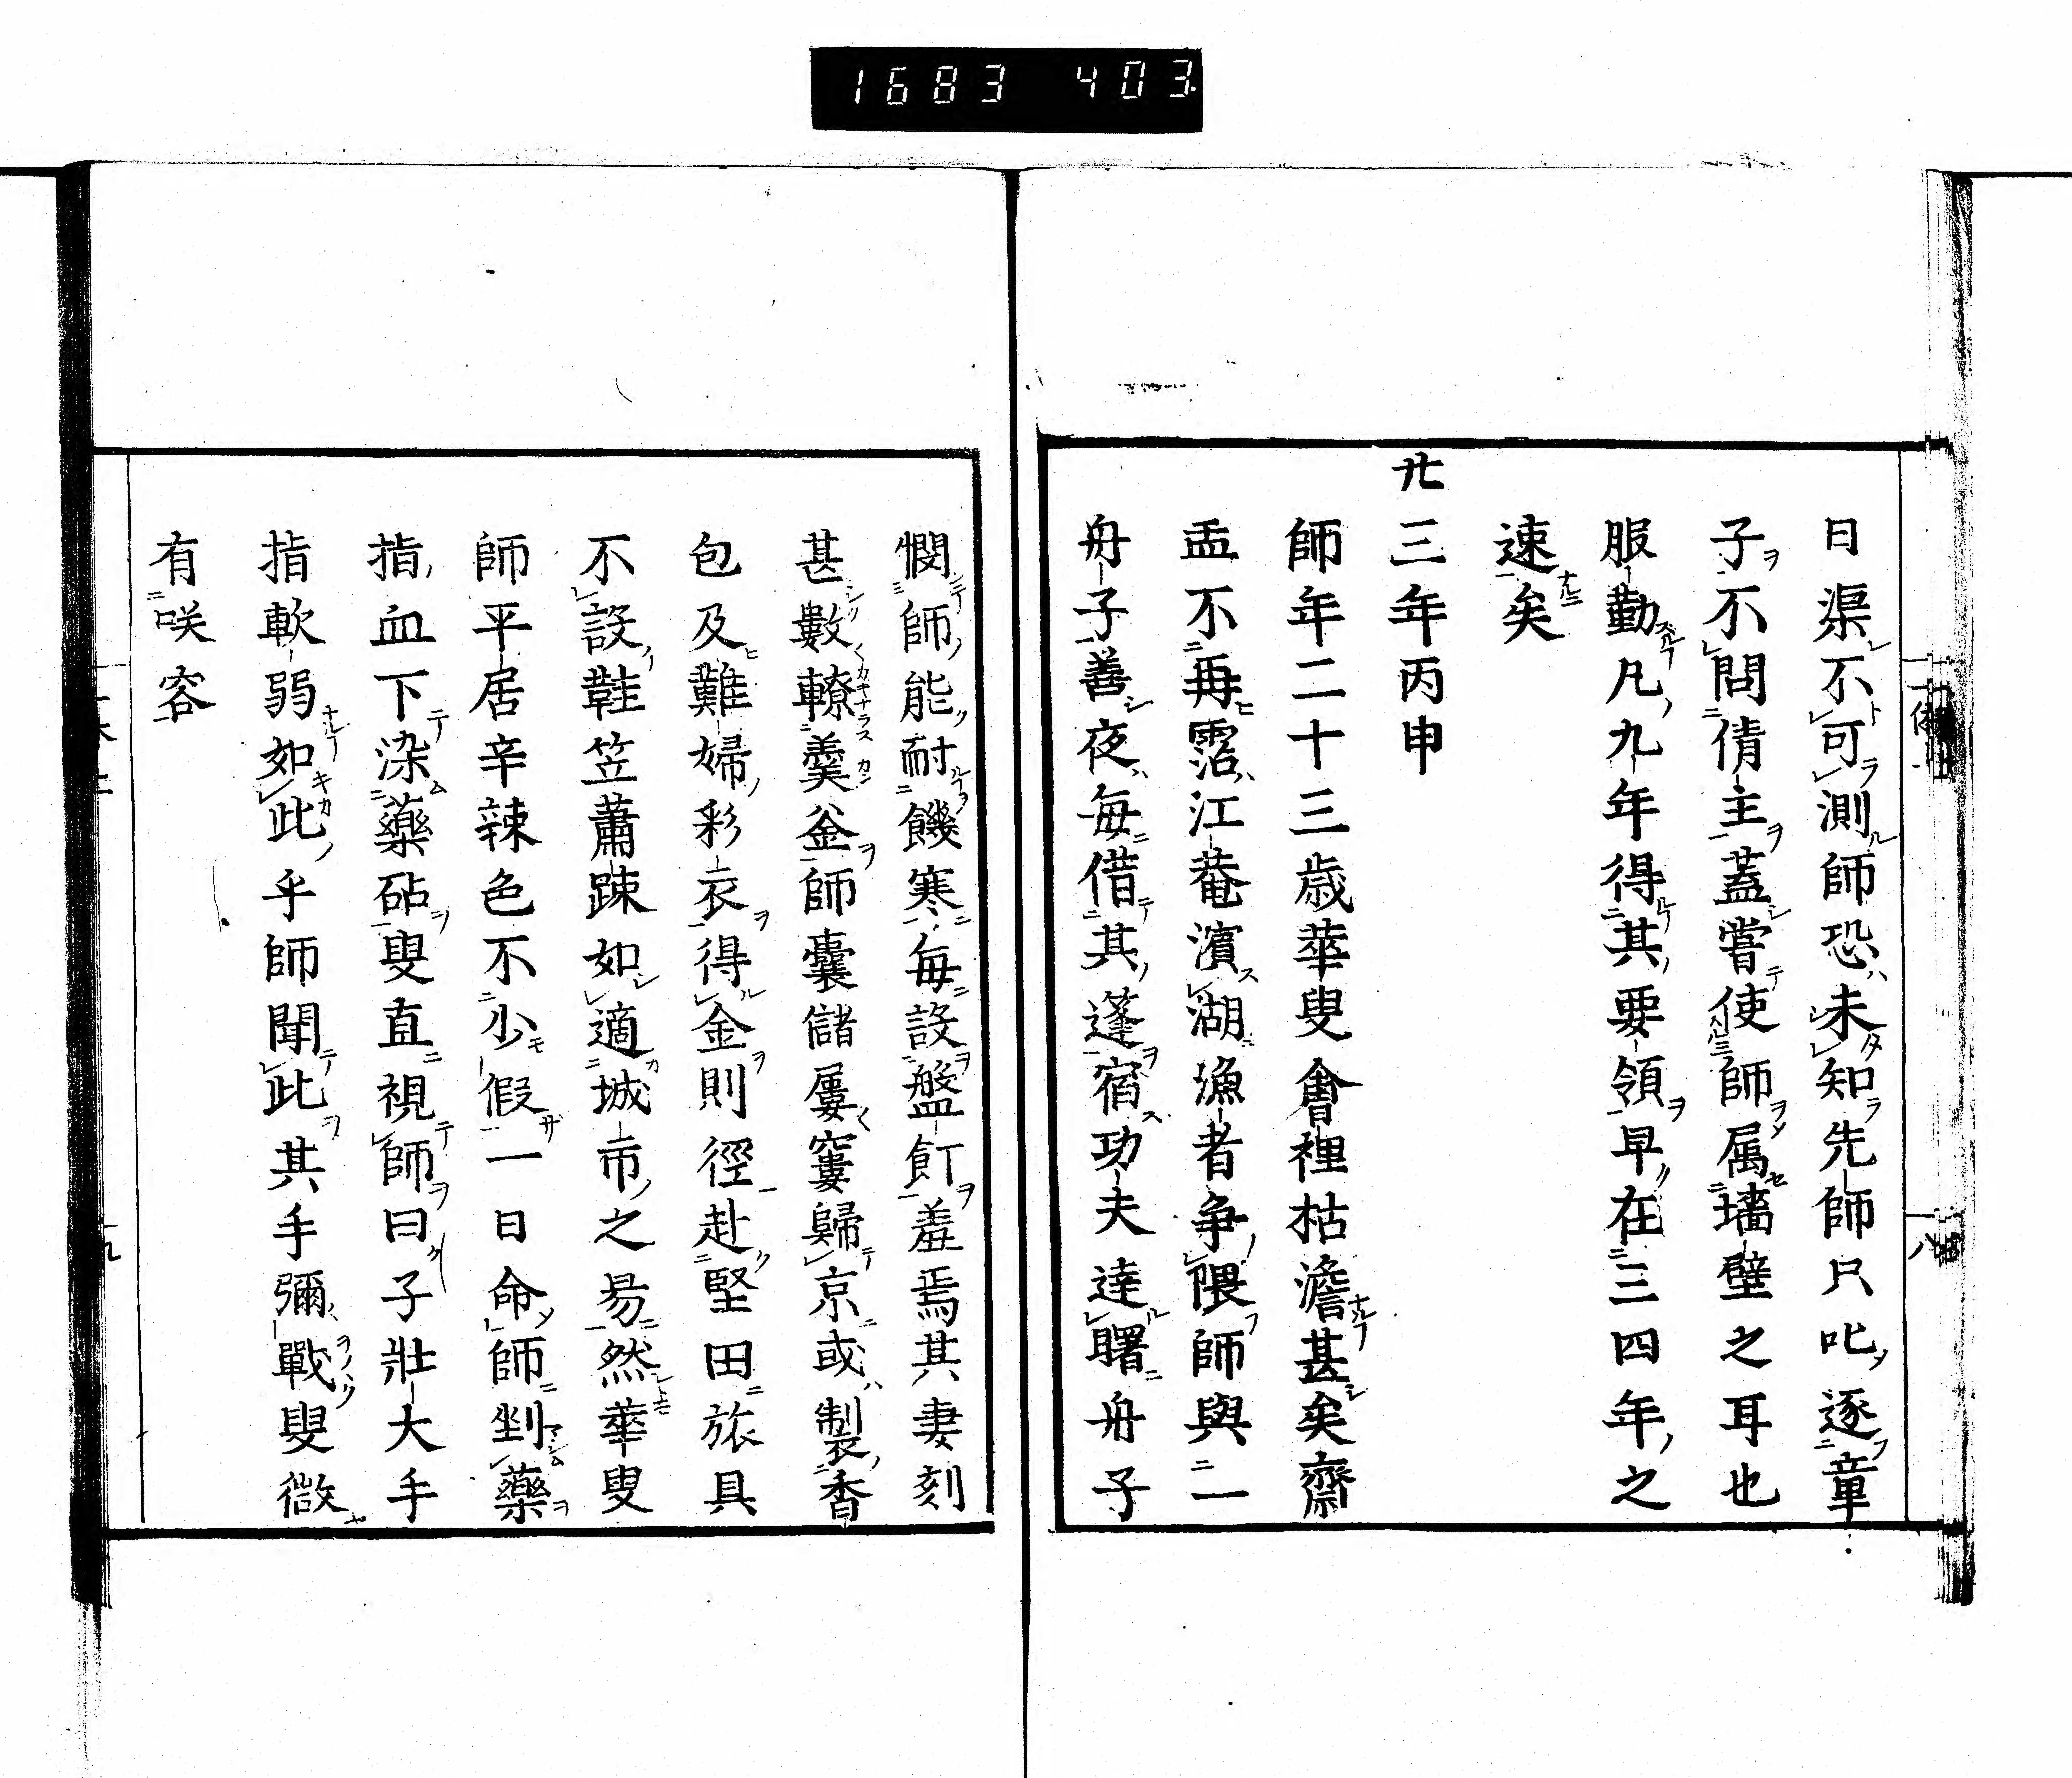 1683 403
日渠不可測師恐未知先師只叱逐童
子不問倩主蓋嘗使師属墻壁之耳也
服勤凡九年得其要領早在三四年之
速矣
廿三年丙申
師年二十三歳華叟會裡枯澹甚矣齋
盂不再霑江菴濵湖漁者争隈師與二一
舟子善夜毎借其篷宿功夫達曙舟子
憫師能耐饑寒毎設盤飣羞焉其妻刻
甚數轑羹釜師嚢儲屢窶歸京或製香
包及難婦彩衣得金則徑赴堅田旅具
不設鞋笠蕭踈如適城市之昜然華叟
師平居辛辣色不少假一日命師剉藥
指血下染藥砧叟直視師曰子壯大手
指軟弱如此乎師聞此其手彌戰叟微
有咲容